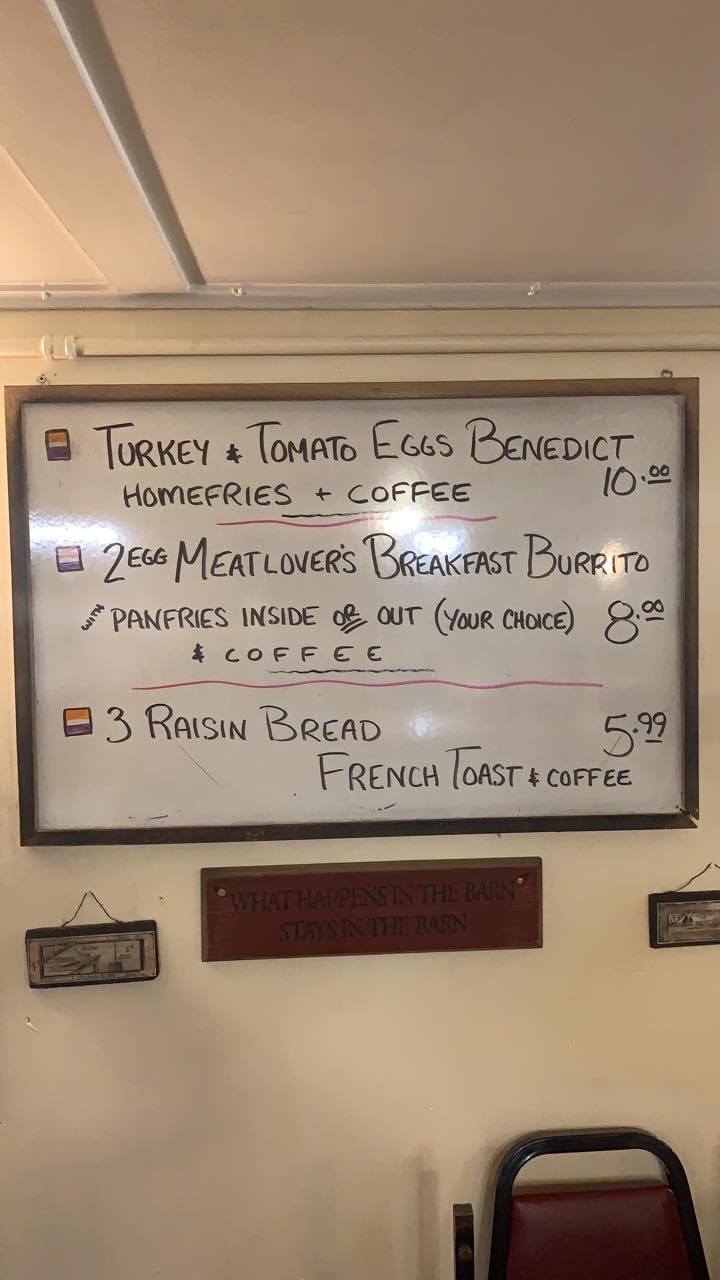 TURKEY & TOMATO EGGS BENEDICT
HOMEFRIES + COFFEE 10.00
2 EGG MEATLOVER'S BREAKFAST BURRITO
WITH PANFRIES INSIDE OR OUT (YOUR CHOICE) 8.00
& COFFEE
3 RAISIN BREAD 5.99
FRENCH TOAST & COFFEE
WHAT HAPPENS IN THE BARN
STAYS IN THE BARN